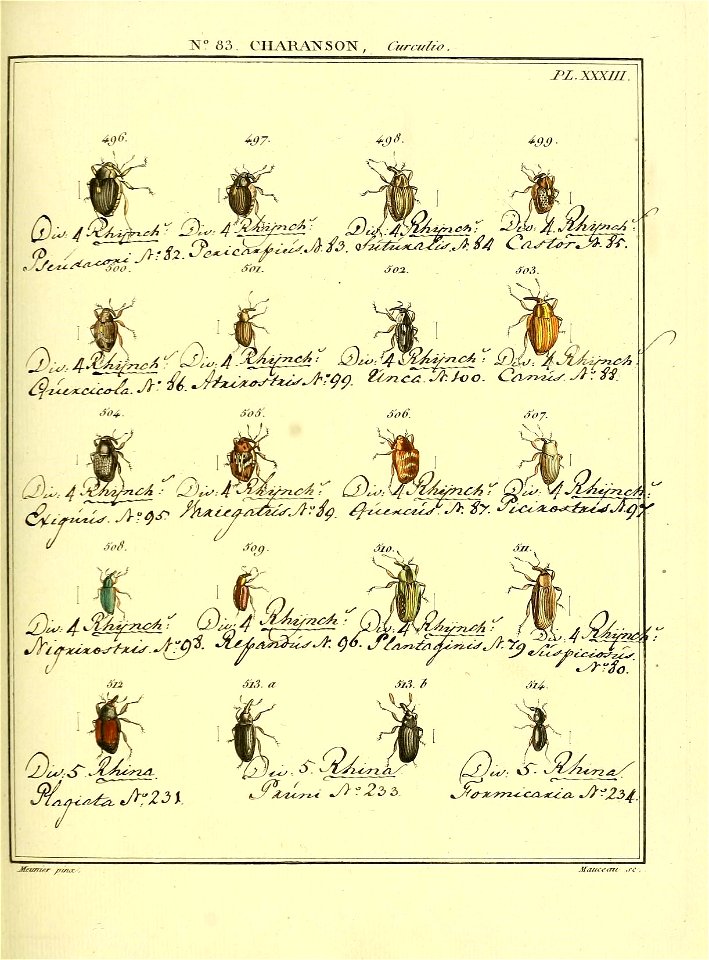 N.º 83. CHARANSON, Curculio.
PL. XXXIII.
496. 497. 498. 499.
Div. 4 Rhijnch.r Div. 4 Rhijnch.r Div. 4 Rhijnch.r Div. 4 Rhijnch.r
Pseudacori N.º 82. Pericarpius N. 83. Suturalis N. 84 Castor N. 85.
500. 501. 502. 503.
Div. 4 Rhijnch.r Div. 4 Rhijnch.r Div. 4 Rhijnch.r Div. 4 Rhijnch.r
Quercicola. N.º 86. Atrirostris N.º 99. Unca. N. 100. Canus. N.º 88.
504. 505. 506. 507.
Div. 4 Rhijnch.r Div. 4 Rhijnch.r Div. 4 Rhijnch.r Div. 4 Rhijnch.r
Exiguus. N.º 95. Variegatus N.º 89. Quercus N. 87. Picirostris N. 97
508. 509. 510. 511.
Div. 4 Rhijnch.r Div. 4 Rhijnch.r Div. 4 Rhijnch.r Div. 4 Rhijnch.r
Nigrirostris. N.º 98. Repandus N. 96. Plantaginis N. 79 Suspiciosus.
N.º 80.
512 513. a 513. b 514.
Div. 5 Rhina Div. 5. Rhina Div. 5. Rhina
Plagiata N.º 231. Pruni N.º 233 Formicaria N.º 234.
Meunier pinx. Mauceau sc.